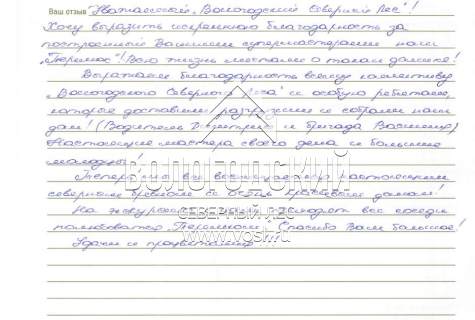 Ваш отзыв Уважаемый „Вологодский Северный Лес"!
Хочу выразить искреннюю благодарность за
построенный Вашими супермастерами наш
„Теремок"! Всю жизнь мечтали о таком домике!
Выражаем благодарность всему коллективу
„Вологодского Северного Леса" и особую ребятам,
которые доставили, разгрузили и собрали наш
дом! (Водитель Дмитрию и бригада Василию)
Настоящие мастера своего дела и большие
молодцы!
Теперь мы все настоящим
северным домом!
На экскурсию приходят все соседи
полюбоваться „Теремком". Спасибо Вам большое!
Удачи и процветания!
ВОЛОГОДСКИЙ
СЕВЕРНЫЙ ЛЕС
www.vosl.ru